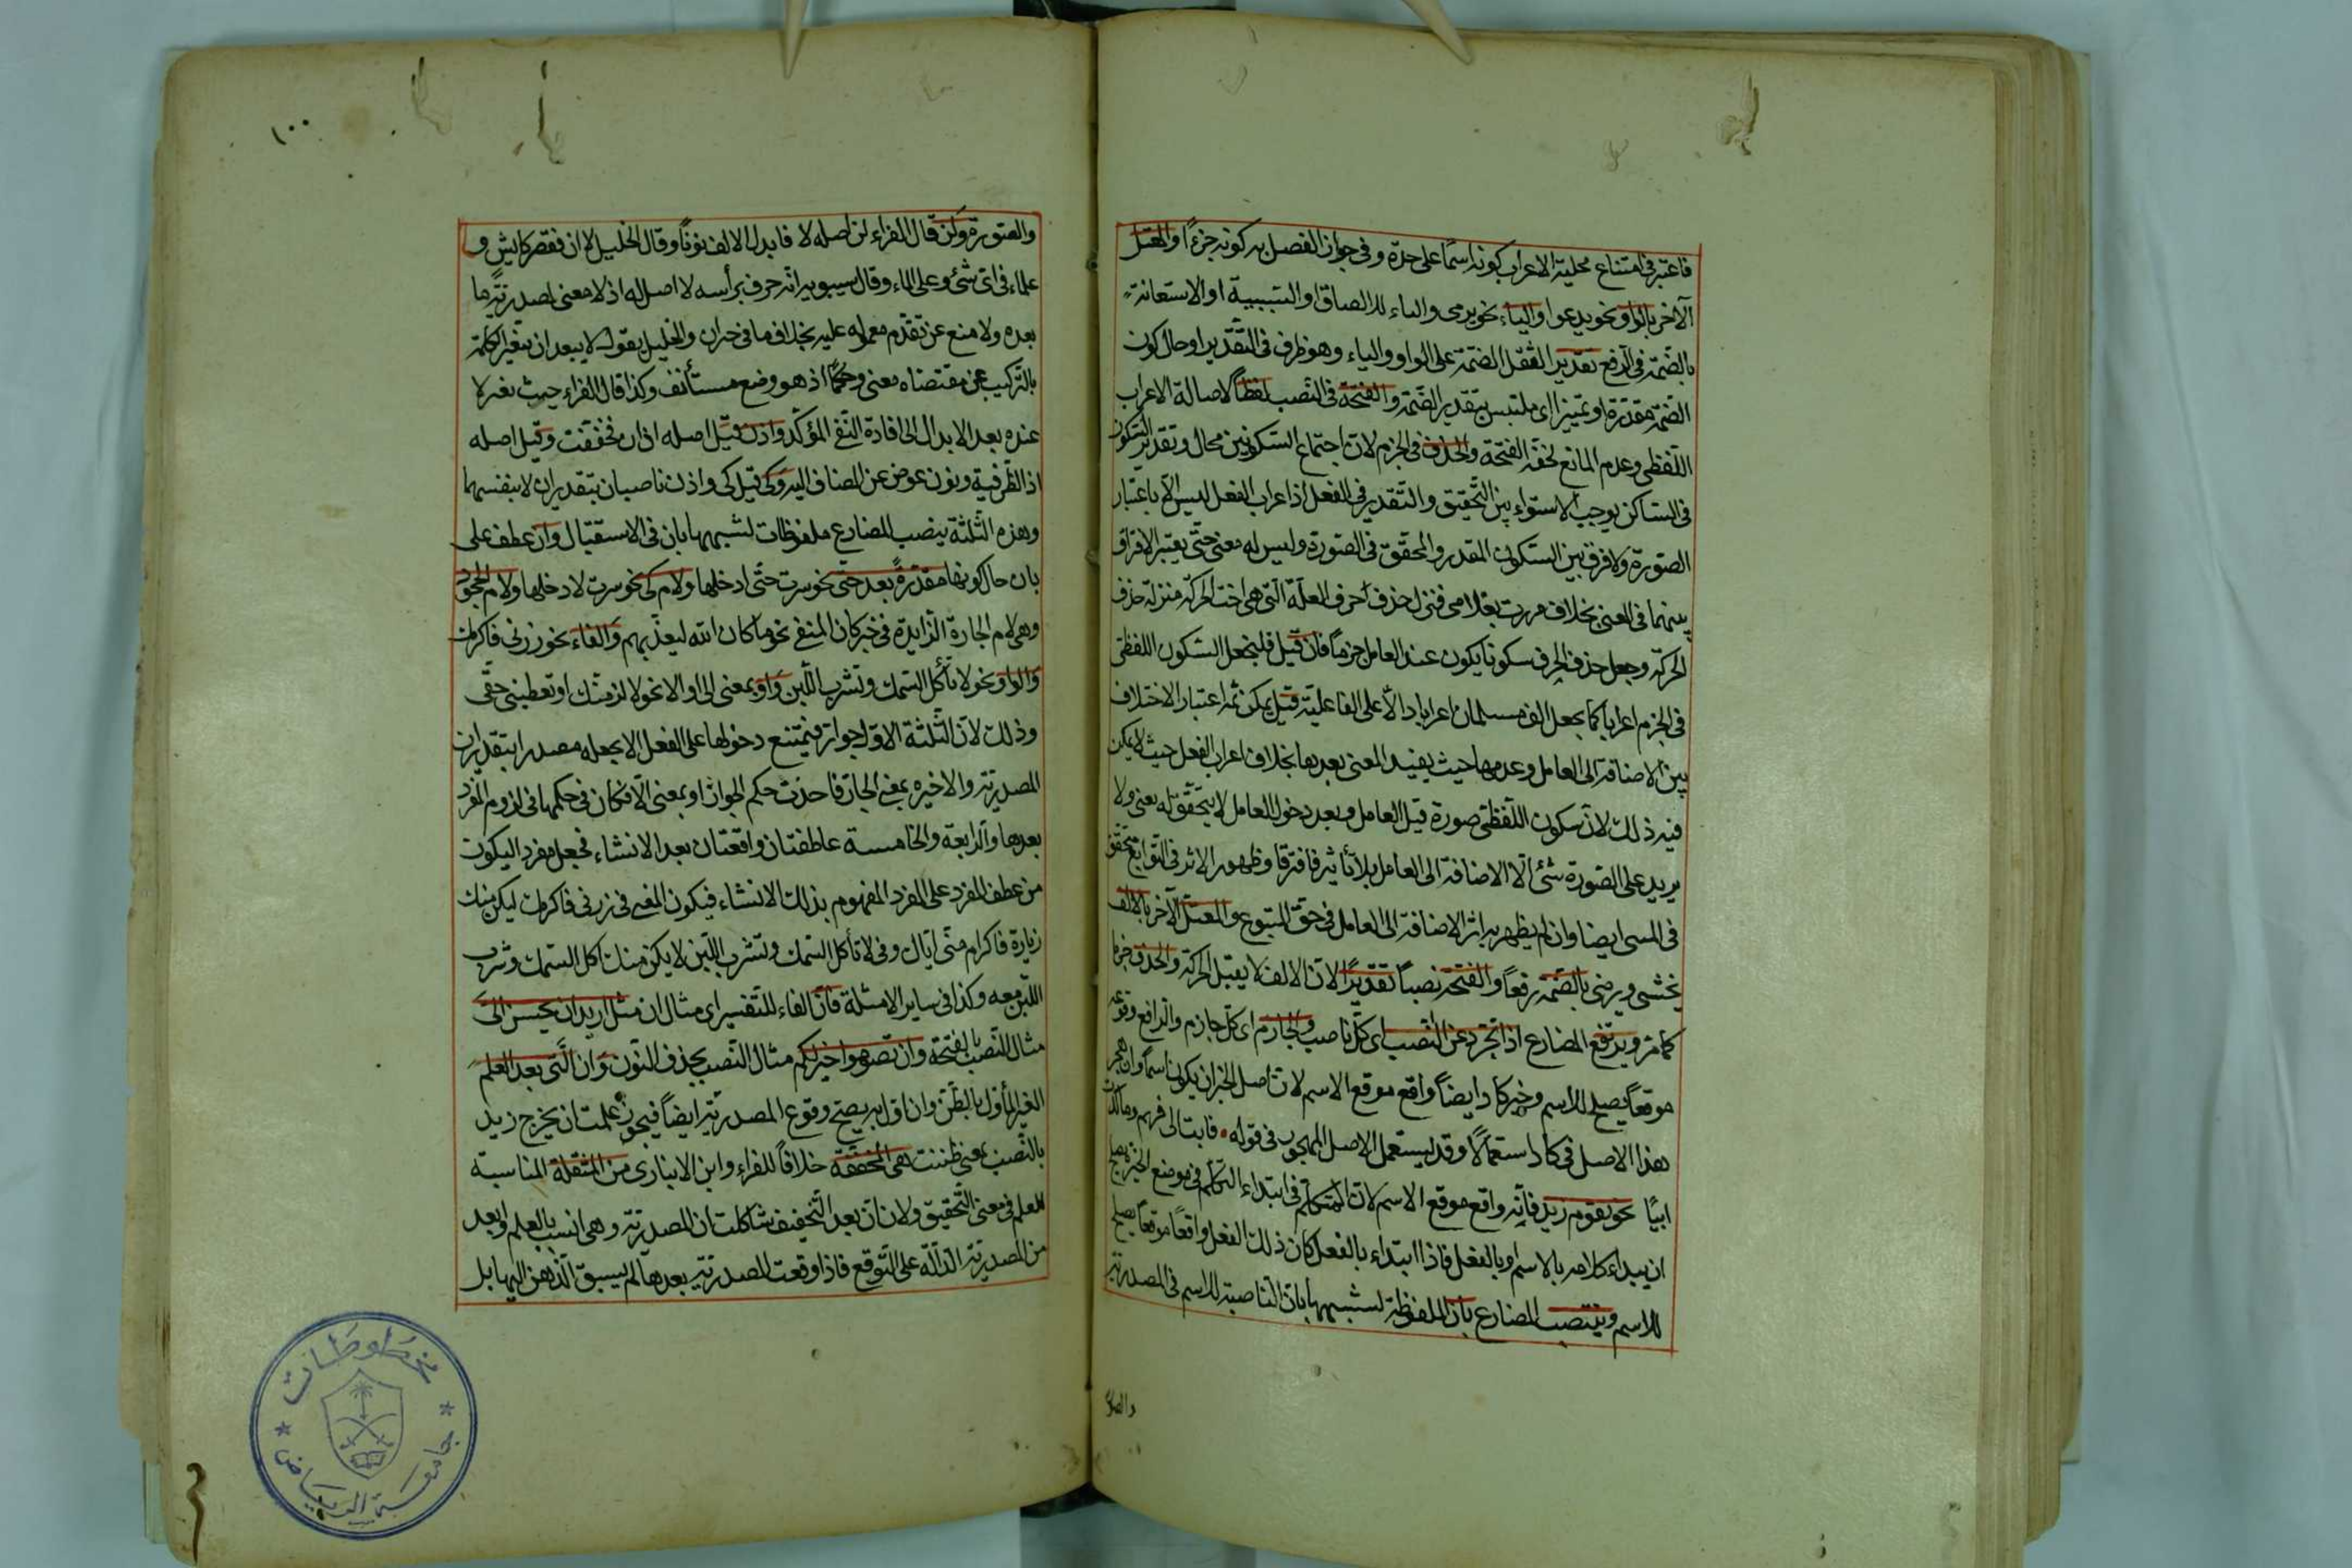 فاعتبر فى امتناع محلية الاعراب كونه اسمًا على حدة وفى جواز الفصل به كونه جزءًا والمعتل
الآخر بالواو نحو يدعوا والياء نحو يرمى والباء للالصاق او السببية او الاستعانة
بالضمة فى الرفع تقديرا لثقل الضمة على الواو والياء وهو ظرف فى التقدير او حال كون
الضمة مقدرة او تمييز اى ملتبس بتقدير الضمة والفتحة فى النصب لفظًا لاصالة الاعراب
اللفظى وعدم المانع لخفة الفتحة والحذف فى الجزم لان اجتماع السكونين محال وتقدير السكون
فى الساكن يوجب الاستواء بين التحقيق والتقدير فى الفعل اذ اعراب الفعل ليس الا باعتبار
الصورة ولا فرق بين السكون المقدر والمحقق فى الصورة وليس له معنى حتى يعتبر الافتراق
بينهما فى المعنى بخلاف مررت بغلامى فنزل حذف احرف العلة التى هى اخت الحركة منزلة حذف
الحركة وجعل حذف الحرف سكونا يكون عند العامل جزمًا فان قيل فليجعل السكون اللفظى
فى الجزم اعرابا كما يجعل الف مسلمان اعرابا دالًا على الفاعلية قيل يمكن ثمه اعتبار الاختلاف
بين الاضافة الى العامل وعدمها حيث يفيد المعنى بعدها بخلاف اعراب الفعل حيث لا يمكن
فيه ذلك لان سكون اللفظى صورة قبل العامل وبعد دخول العامل لا يتحقق له معنى ولا
يزيد على الصورة شئ الا الاضافة الى العامل بلا تأثير فافترقا وظهور الاثر فى التوابع يتحقق
فى المسى ايضا وان لم يظهر به اثر الاضافة الى العامل فى حق المتبوع والمعتل الآخر بالالف
يخشى ويرضى بالضمة رفعًا والفتحة نصبًا تقديرًا لان الالف لا يقبل الحركة والحذف جزما
كما مر ويرتفع المضارع اذا تجرد عن الناصب اى كل ناصب والجازم اى كل جازم والرافع وقوعه
موقعًا يصلح للاسم وخبر كاد ايضًا واقع موقع الاسم لان اصل الخبر ان يكون اسمًا وان هجر
هذا الاصل فى كاد استعمالًا وقد يستعمل الاصل المهجور فى قوله فابت الى فهم وما كدت
ايبًا نحو يقوم زيد فانه واقع موقع الاسم لان المتكلم فى ابتداء التكلم فى موضع الخيرة يصلح
ان يبداء كلامه بالاسم او بالفعل فاذا ابتداء بالفعل كان ذلك الفعل واقعًا موقعًا يصلح
للاسم وينتصب المضارع بان الملفوظة لشبهها بان الناصبة للاسم فى المصدرية
والصو
١٠٠
والصورة ولن قال الفراء لن اصله لا فابدل الالف نونًا وقال الخليل لا ان فقصر كايش و
علماء فى اى شئ وعلى الماء وقال سيبويه انه حرف برأسه لا اصل له اذ لا معنى لمصدرية ما
بعده ولا منع عن تقدم معموله عليه بخلاف ما فى خبر ان والخليل يقول لا يبعد ان تتغير الكلمة
بالتركيب عن مقتضاه معنى وحكمًا اذ هو وضع مستأنف وكذا قال الفراء حيث تغير لا
عنده بعد الابدال الى افادة النفى المؤكد واذن قيل اصله اذ ان فخففت وقيل اصله
اذ الظرفية ونون عوض عن المضاف اليه وكى قيل كى واذن ناصبان بتقدير ان لا بنفسهما
وهذه الثلثة ينصب المضارع ملفوظات لشبهها بان فى الاستقبال وان عطف على
بان حال كونها مقدرةً بعد حتى نحو سرت حتى ادخلها ولام كى نحو سرت لادخلها ولام الجحود
وهى لام الجارة الزايدة فى خبر كان المنفى نحو ما كان الله ليعذبهم والفاء نحو زرنى فاكرمك
والواو نحو لا تأكل السمك وتشرب اللبن واو بمعنى الى او الا نحو لالزمنك او تعطينى حقى
وذلك لان الثلثة الاول جوارّ فيمتنع دخولها على الفعل الا بجعله مصدرا بتقدير ان
المصدرية والاخيره بمعنى الجار فاخذت حكم الجوارّ او بمعنى الا فكان فى حكمها فى لزوم المفرد
بعدها والرابعة والخامسة عاطفتان واقعتان بعد الانشاء فجعل مفردا ليكون
من عطف المفرد على المفرد المفهوم بذلك الانشاء فيكون المعنى فى زرنى فاكرمك ليكن منك
زيارة فاكرام منى اياك وفى لا تأكل السمك وتشرب اللبن لا يكن منك اكل السمك وشرب
اللبن معه وكذا فى ساير الامثلة فان الفاء للتفسير اى مثال ان مثل اريد ان يحسن الىّ
مثال النصب بالفتحة وان تصوموا خير لكم مثال النصب بحذف النون وان التى بعد العلم
الغير المأوّل بالظن وان اوّل به يصح وقوع المصدرية ايضًا فيجوز علمت ان يخرج زيد
بالنصب بمعنى ظننت هى المخففة خلافًا للفراء وابن الانبارى من المثقلة المناسبة
للعلم فى معنى التحقيق ولان ان بعد التخفيف شاكلت ان المصدرية وهى انسب بالعلم وابعد
من المصدرية الدالة على التوقع فاذا وقعت المصدرية بعدها لم يسبق الذهن اليها بل
مخطوطات
جامعة الرياض